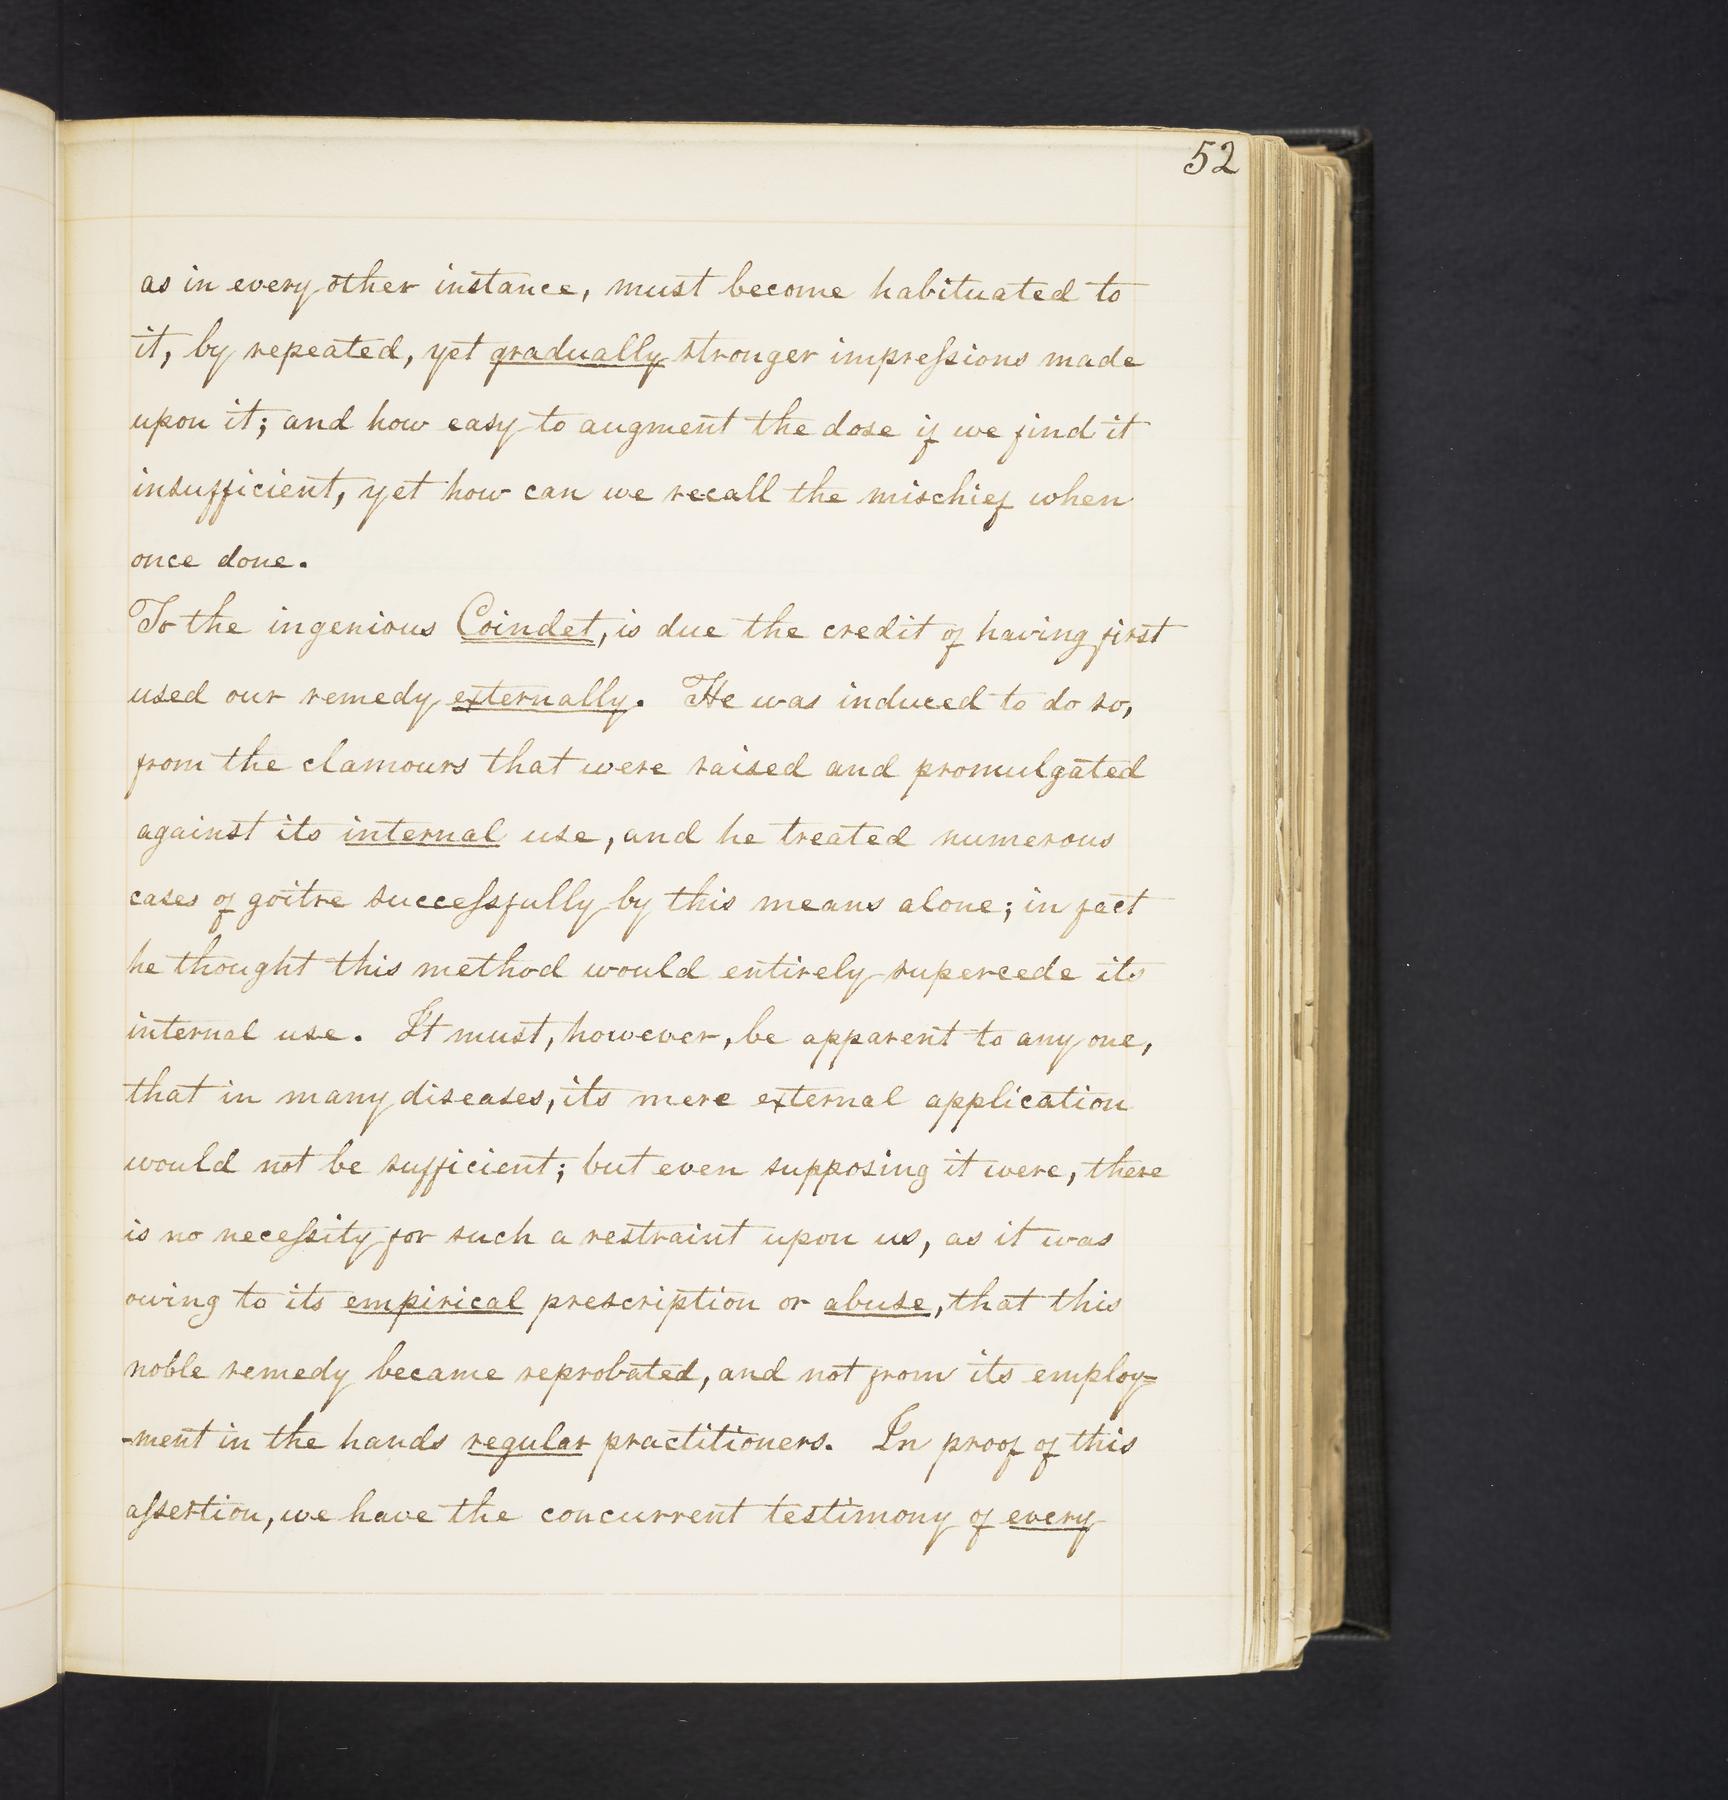 52
as in every other instance, must become habituated to
it, by repeated, yet gradually stronger impreſsions made
upon it; and how easy to augment the dose if we find it
insufficient, yet how can we recall the mischief when
once done.
To the ingenious Coindet, is due the credit of having first
used our remedy externally. He was induced to do so,
from the clamours that were raised and promulgated
against its internal use, and he treated numerous
cases of goitre succeſsfully by this means alone; in fact
he thought this method would entirely supercede its
internal use. It must, however, be apparent to any one,
that in many diseases, its mere external application
would not be sufficient; but even supposing it were, there
is no neceſsity for such a restraint upon us, as it was
owing to its empirical prescription or abuse, that this
noble remedy became reprobated, and not from its employ=
-ment in the hands regular practitioners. In proof of this
aſsertion, we have the concurrent testimony of every